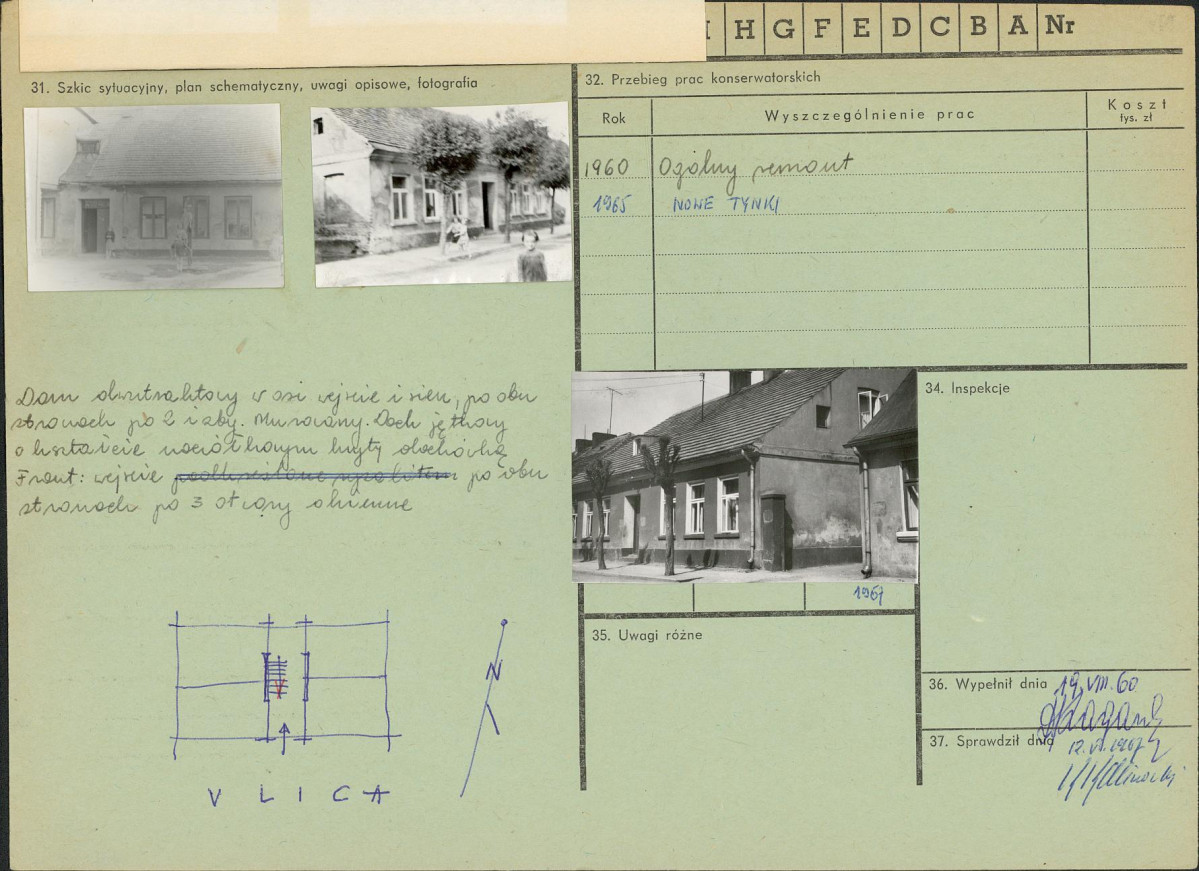 H G F E D C B A Nr
31. Szkic sytuacyjny, plan schematyczny, uwagi opisowe, fotografia
32. Przebieg prac konserwatorskich
Rok
Wyszczególnienie prac
Koszt
tys. zł
1960 Ogólny remont
1965 NOWE TYNKI
Dom dwutraktowy w osi wejście i sień, po obu
stronach po 2 izby. Murowany. Dach jętkowy
o kształcie naczółkowym kryty dachówką
Front: wejście po obu
stronach po 3 otwory okienne
1967
34. Inspekcje
35. Uwagi różne
36. Wypełnił dnia 19.VIII.60
37. Sprawdził dnia
N
ULICA